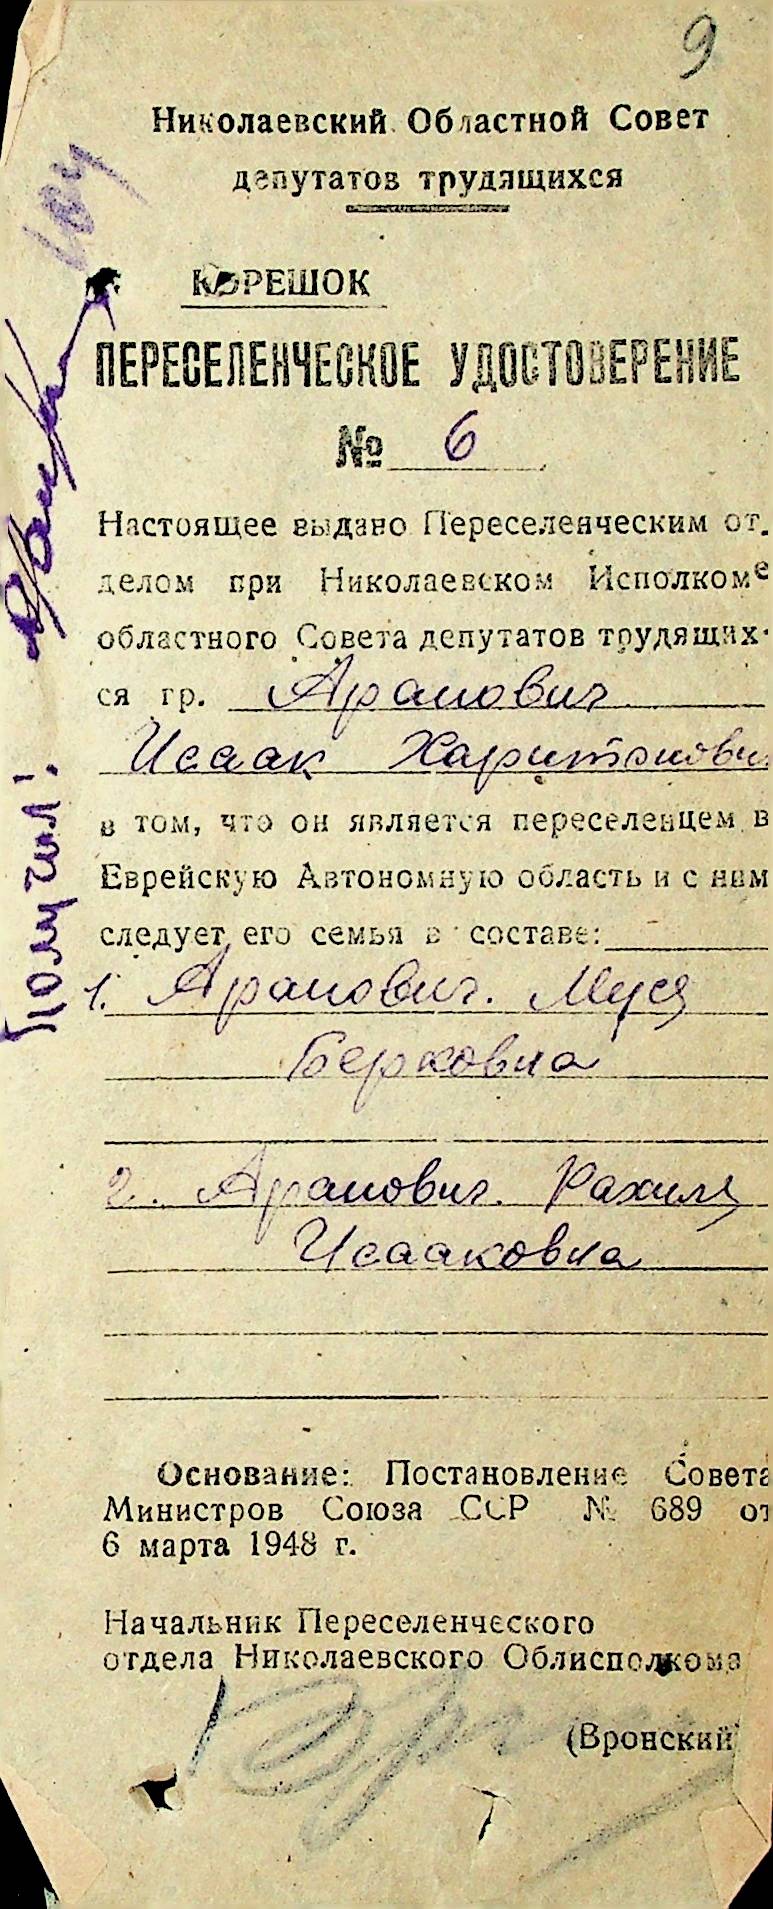 9
Николаевский Областной Совет
депутатов трудящихся
КОРЕШОК
ПЕРЕСЕЛЕНЧЕСКОЕ УДОСТОВЕРЕНИЕ
№ 6
Настоящее выдано Переселенческим от.
делом при Николаевском Исполкоме
областного Совета депутатов трудящих-
ся гр. Арапович
Исаак Харитонович
в том, что он является переселенцем в
Еврейскую Автономную область и с ним
следует его семья в составе:
1. Арапович. Муся
Берковна
2. Арапович. Рахиля
Исааковна
Основание: Постановление Совета
Министров Союза ССР № 689 от
6 марта 1948 г.
Начальник Переселенческого
отдела Николаевского Облисполкома
(Вронский)
Получил!